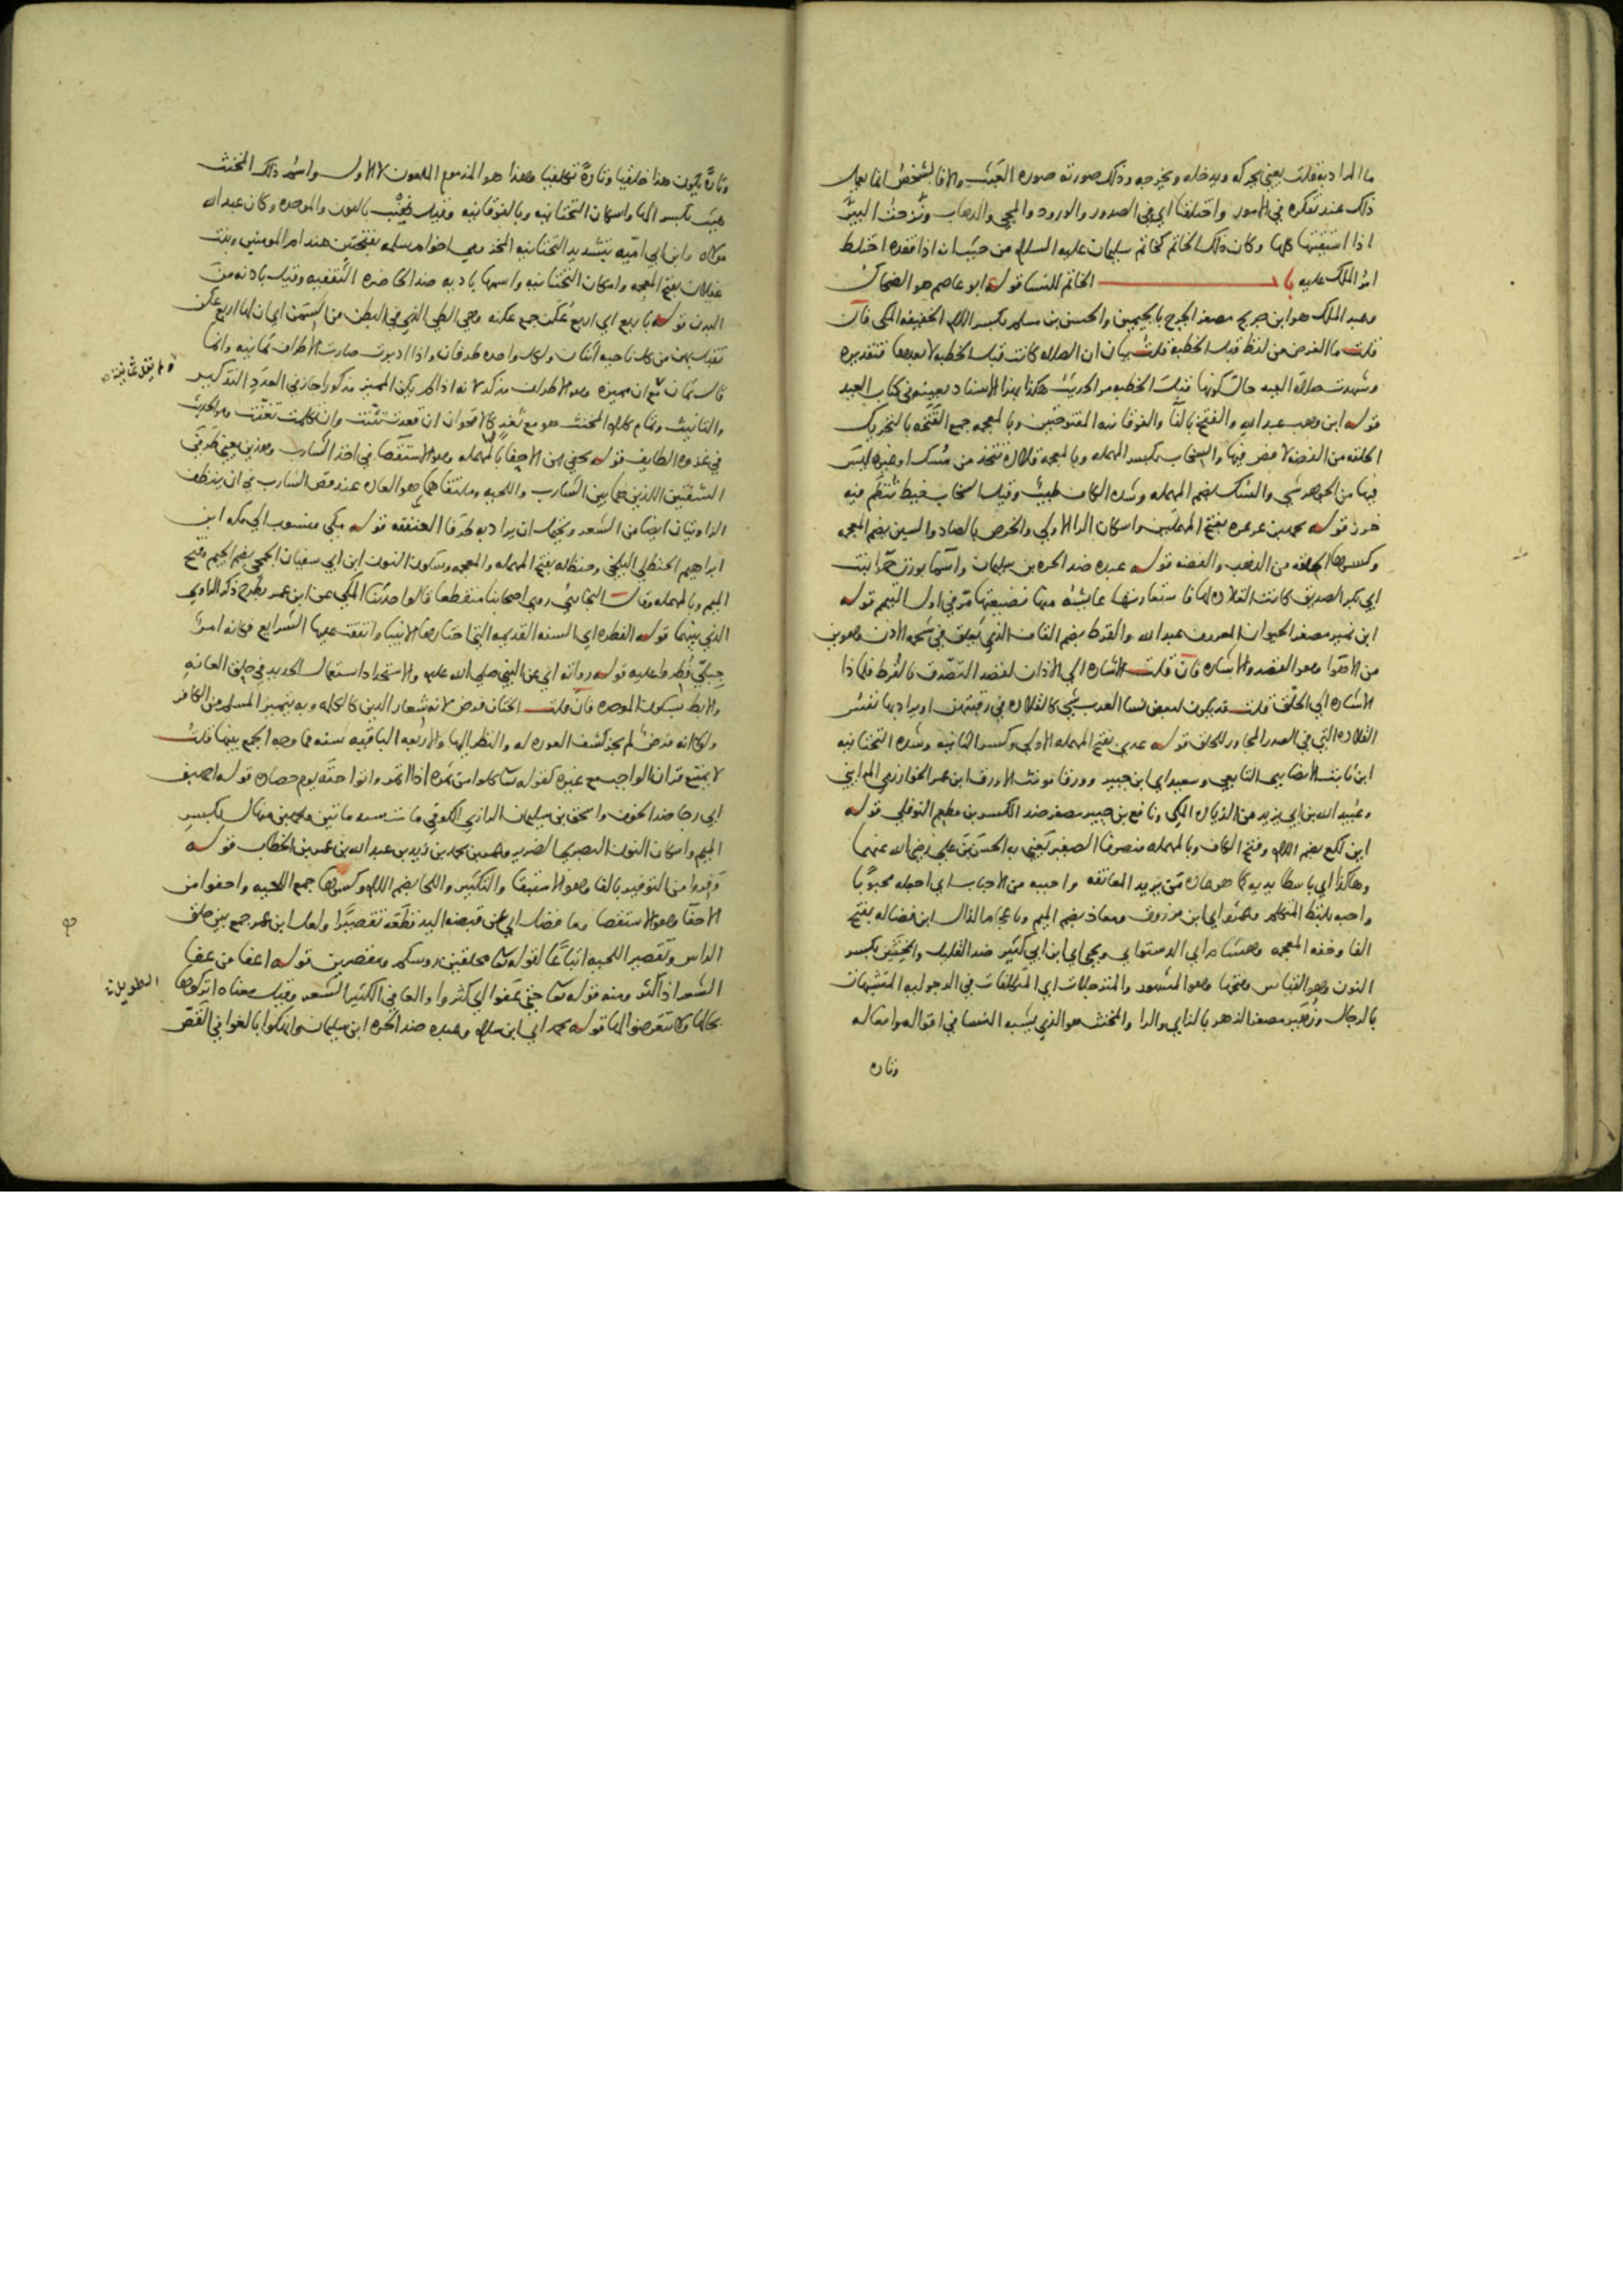 ما المراد به قلت يعني يحركه ويدخله ويخرجه وذلك صورته صورة العبث والا فالشخص انما يعمل
ذلك عند تفكره في الامور واختلفنا اي في الصدور والورود والمجي والذهاب ونزحت البير
اذا استقيتها كلها وكان ذلك الخاتم كخاتم سليمان عليه السلام من حيث انه اذا فقده اختلط
امر الملك عليه باب الخاتم للنسا قوله ابو عاصم هو الضحاك
وعبد الملك هو ابن جريج مصغر الجرج بالجيمين والحسن بن مسلم بكسر اللام الخفيفه المكي فان
قلت ما الغرض من لفظ قبل الخطبه قلت بيان ان الصلاه كانت قبل الخطبه لا بعدها فتقديره
وشهدت صلاة العيد حال كونها قبل الخطبه مر الحديث هكذا بهذا الاسناد بعينه في كتاب العيد
قوله ابن وهب عبد الله والفتخ بالفا والفوقانيه المفتوحتين وبالمعجمه جمع الفتخه بالتحريك
الحلقه من الفضه لا فص فيها والسخاب بكسر المهمله وبالمعجمه قلاده تتخذ من سك او غيره ليس
فيها من الجوهر شي والسك بضم المهمله وشده الكاف طيب وقيل السخاب خيط تنظم فيه
خرز قوله محمد بن عرعره بفتح المهملتين واسكان الرا الاولي والخرص بالصاد والسين بضم المعجمه
وكسرها الحلقه من الذهب والفضه قوله عبده ضد الحره بن سليمان واسما بوزن حمرا بنت
ابي بكر الصديق كانت القلاده لها فاستعارتها عايشه منها فضيعتها مر في اول التيمم قوله
ابن نمير مصغر الحيوان المعروف عبد الله والقرط بضم القاف الذي يعلق في شحمة الاذن ويهوين
من الاهوا وهو القصد والاشاره فان قلت الاشاره الي الاذان لقصد التصدق بالقرط فلماذا
الاشاره الي الحلق قلت قد يكون لبعض نسا العرب شي كالقلاده في رقبتهن او يراد بها نفس
القلاده التي في الصدر المجاور للحلق قوله عدي بفتح المهمله الاولي وكسر الثانيه وشده التحتانيه
ابن ثابت الانصاري التابعي وسعيد اي ابن جبير وورقا مونث الاورق ابن عمر الخوارزمي المدايني
وعبيد الله بن ابي يزيد من الزياده المكي ونافع بن جبير مصغر ضد الكسر بن مطعم النوفلي قوله
اين لكع بضم اللام وفتح الكاف وبالمهمله منصرفا الصغير يعني به الحسن بن علي رضي الله عنهما
وهكذا اي باسطا يديه كما هو عاده من يريد المعانقه واحببه من الاحباب اي اجعله محبوبا
واحبه بلفظ المتكلم ومحمد اي ابن مرزوق ومعاذ بضم الميم وباعجام الذال ابن فضاله بفتح
الفا وخفه المعجمه وهشام اي الدستوايي ويحيي اي ابن ابي كثير ضد القليل والمخنثين بكسر
النون وهو القياس وفتحها وهو المشهور والمترجلات اي المتكلفات في الرجوليه المتشبهات
بالرجال وزهير مصغر الزهر بالزاي والرا والمخنث هو الذي يشبه النسا في اقواله وافعاله
وتاره
وتارة يكون هذا خلقيا وتارة تكلفيا وهذا هو المذموم الملعون لا الاول واسم ذلك المخنث
هيت بكسر الها واسكان التحتانيه وبالفوقانيه وقيل هنب بالنون والموحده وكان عبد الله
مولاه وابن ابي اميه بتشديد التحتانيه المخزومي اخو ام سلمه بفتحتين هند ام المومنين وبنت
غيلان بفتح المعجمه واسكان التحتانيه واسمها باديه ضد الحاضره الثقفيه وقيل بادنه من
البدن قوله باربع اي اربع عكن جمع عكنه وهي الطي الذي في البطن من السمن اي ان لها اربع عكن
تقبل بهن من كل ناحيه اثنان ولكل واحده طرفان واذا ادبرت صارت الاطراف ثمانيه وانما
قال بثمان مع ان مميزه وهو الاطراف مذكر لانه اذا لم يكن المميز مذكورا جاز في العدد التذكير
ولم يقل بثمانية
والتانيث وتمام كلام المخنث هو مع ثغر كالاقحوان ان قعدت تثنت وان تكلمت تغنت ومر الحديث
في غزوه الطايف قوله يحفي من الاحفا بالمهمله وهو الاستقصا في اخذ الشارب وهذين يعني طرفي
الشفتين اللذين هما بين الشارب واللحيه وملتقاهما كما هو العاده عند قص الشارب في ان ينظف
الزاويتان ايضا من الشعر ويحتمل ان يراد به طرفا العنفقه قوله مكي منسوب الي مكه ابن
ابراهيم الحنظلي البلخي وحنظله بفتح المهمله والمعجمه وسكون النون ابن ابي سفيان الجمحي بضم الجيم وفتح
الميم وبالمهمله وقال البخاري روي اصحابنا منقطعا قالوا حدثنا المكي عن ابن عمر بطرح ذكر الراوي
الذي بينهما قوله الفطره اي السنه القديمه التي اختارها الانبيا واتفقت عليها الشرايع فكانه امر
جبلي فطروا عليه قوله روايه اي عن النبي صلي الله عليه والاستحداد استعمال الحديد في حلق العانه
والابط بسكون الموحده فان قلت الختان فرض لانه شعار الدين كالكلمه وبه يتميز المسلم من الكافر
ولولا انه فرض لم يجز كشف العوره له والنظر اليها والاربعه الباقيه سنه فما وجه الجمع بينها قلت
لا يمتنع قران الواجب مع غيره كقوله تعا كلوا من ثمره اذا اثمر واتوا حقه يوم حصاده قوله احمد بن
ابي رجا ضد الخوف واسحق بن سليمان الرازي الكوفي مات سنه ماتين ومحمد بن منهال بكسر
الميم واسكان النون البصري الضرير وعمر بن محمد بن زيد بن عبد الله بن عمر بن الخطاب قوله
وفروا من التوفير بالفا وهو الاستبقا والتكثير واللحا بضم اللام وكسرها جمع اللحيه واحفوا من
الاحفا وهو الاستقصا وما فضل اي عن قبضه اليد قطعه تقصيرا ولعل ابن عمر جمع بين حلق
الراس وتقصير اللحيه اتباعا لقوله تعا محلقين روسكم ومقصرين قوله اعفا من عفا
الشعر اذا كثر ومنه قوله تعا حتي عفوا اي كثروا والعافي الكثير الشعر وقيل معناه اتركوها
الطويل
بحالها ولا تتعرضوا لها قوله محمد اي ابن سلام وعبده ضد الحره ابن سليمان وانهكوا بالغوا في القص